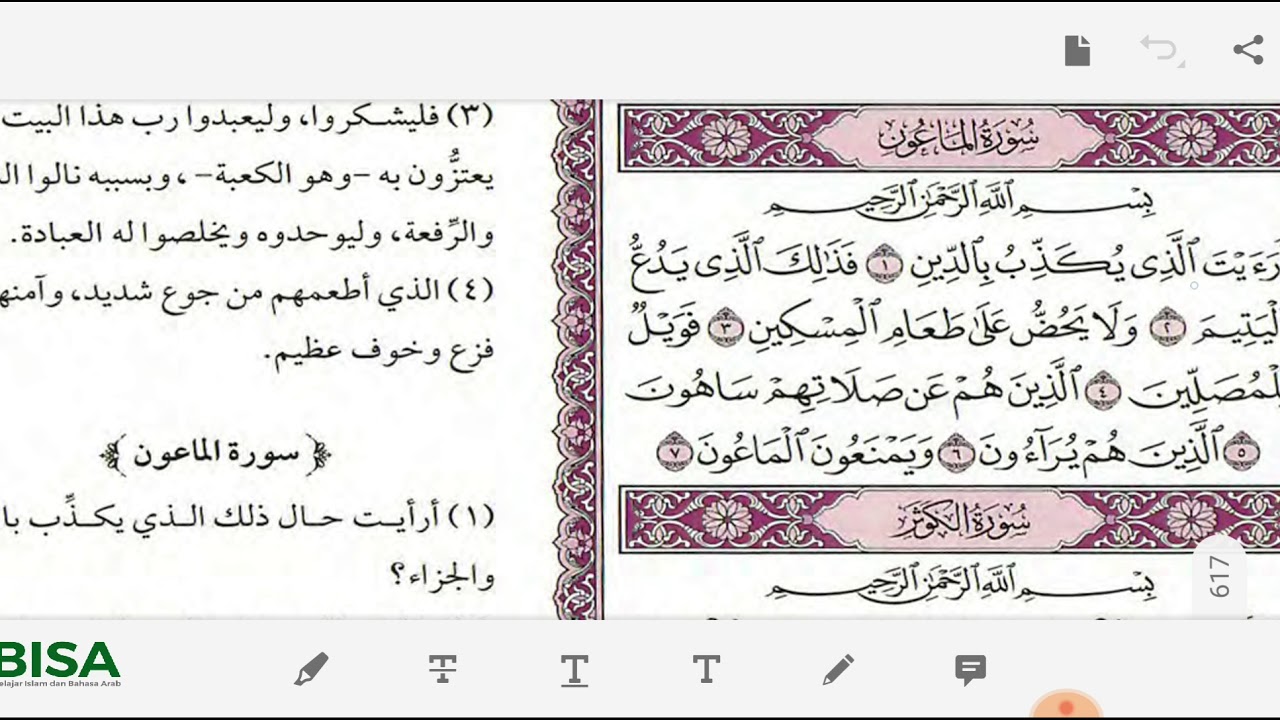 سُورَةُ الْمَاعُونِ
بِسْمِ ٱللَّهِ ٱلرَّحْمَٰنِ ٱلرَّحِيمِ
رَءَيْتَ ٱلَّذِى يُكَذِّبُ بِٱلدِّينِ ١ فَذَٰلِكَ ٱلَّذِى يَدُعُّ
لْيَتِيمَ ٢ وَلَا يَحُضُّ عَلَىٰ طَعَامِ ٱلْمِسْكِينِ ٣ فَوَيْلٌ
لْمُصَلِّينَ ٤ ٱلَّذِينَ هُمْ عَن صَلَاتِهِمْ سَاهُونَ
٥ ٱلَّذِينَ هُمْ يُرَآءُونَ ٦ وَيَمْنَعُونَ ٱلْمَاعُونَ ٧
سُورَةُ الْكَوْثَرِ
بِسْمِ ٱللَّهِ ٱلرَّحْمَٰنِ ٱلرَّحِيمِ
(٣) فليشكروا، وليعبدوا رب هذا البيت
يعتزُّون به -وهو الكعبة-، وبسببه نالوا
والرِّفعة، وليوحدوه ويخلصوا له العبادة.
(٤) الذي أطعمهم من جوع شديد، وآمنه
فزع وخوف عظيم.
﴿سورة الماعون﴾
(١) أرأيت حال ذلك الذي يكذِّب با
والجزاء؟
617
BISA
elajar Islam dan Bahasa Arab
T
T
T